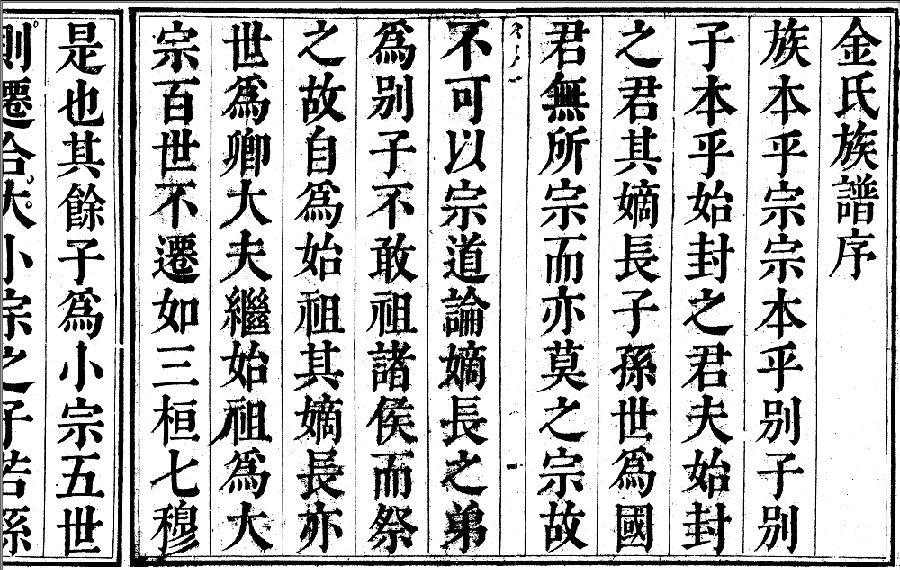 金氏族譜序
族本乎宗宗本乎別子別
子本乎始封之君夫始封
之君其嫡長子孫世爲國
君無所宗而亦莫之宗故
不可以宗道論嫡長之弟
爲別子不敢祖諸侯而祭
之故自爲始祖其嫡長亦
世爲卿大夫繼始祖爲大
宗百世不遷如三桓七穆
是也其餘子爲小宗五世
則遷合大小宗之子若孫